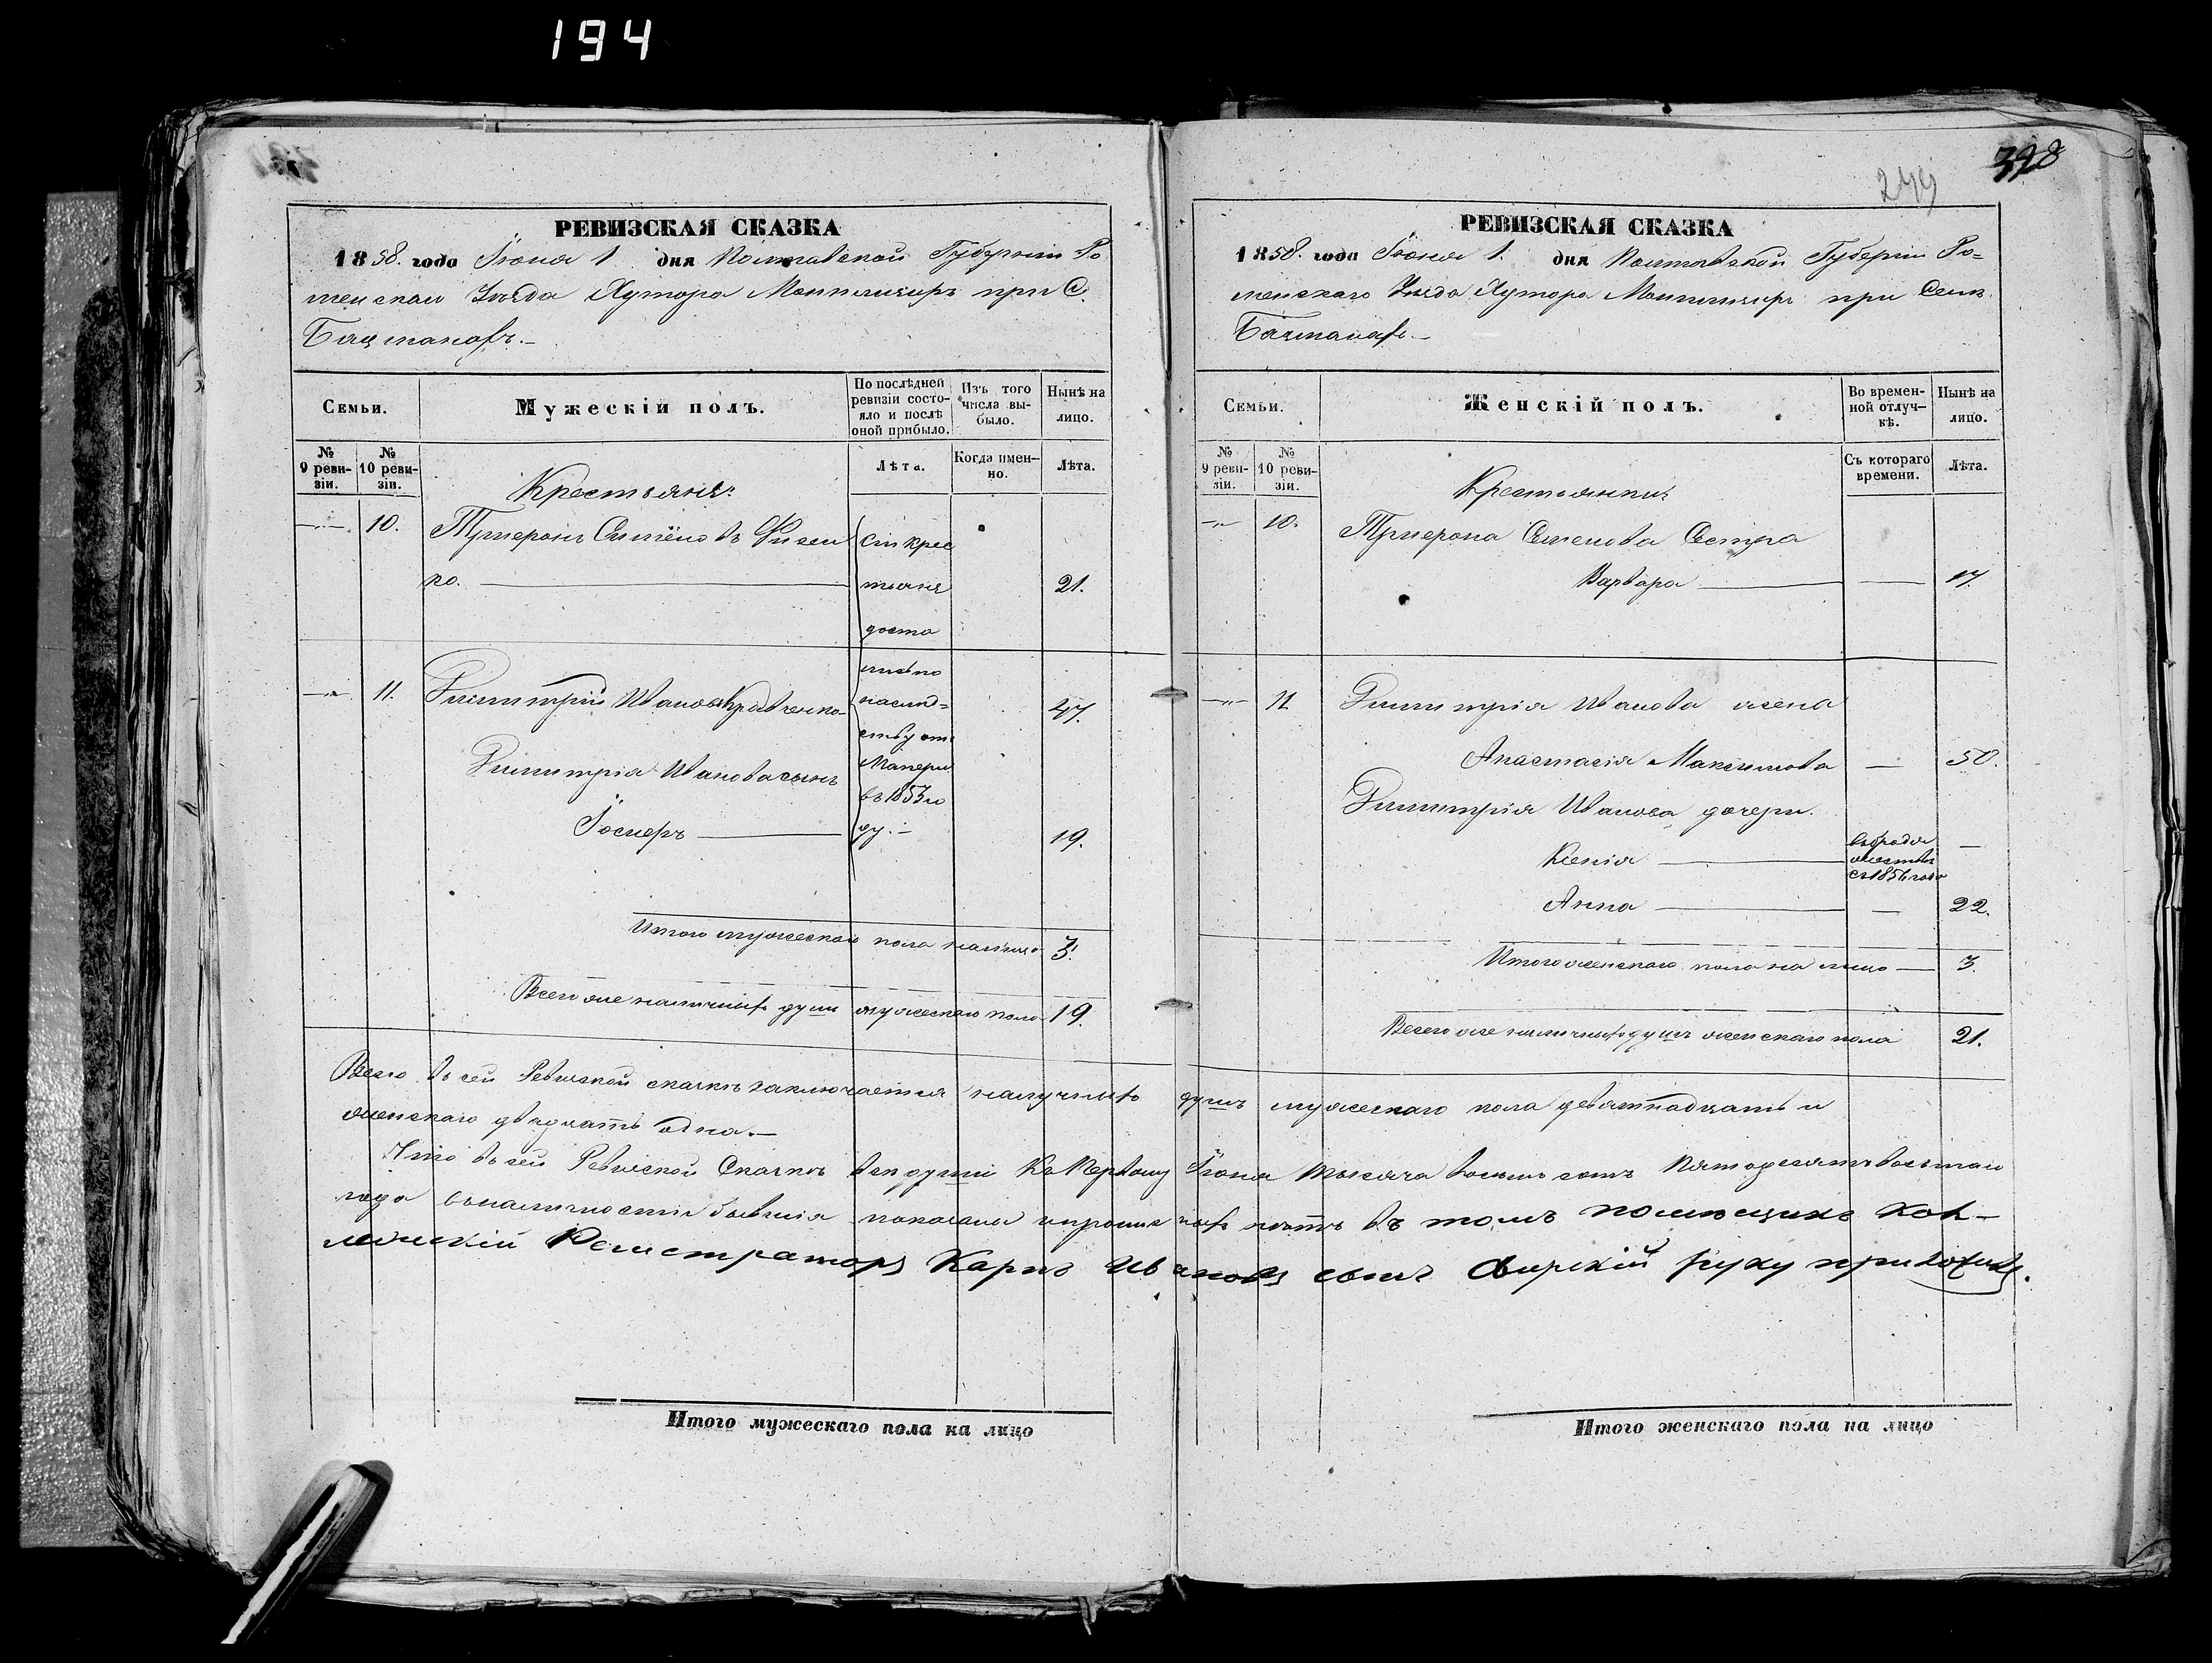 194
РЕВИЗСКАЯ СКАЗКА
1858. года Іюня 1 дня Полтавской Губерніи Ро
менскаго Уѣзда Хутора при С.
Бацмановъ.
Семьи.
Мужескій полъ.
По послѣдней
ревизіи состо-
яло и послѣ
оной прибыло.
Изъ того
числа вы-
было.
Нынѣ на
лицо.
№
9 реви-
зіи.
№
10 реви-
зіи.
Лѣта.
Когда имен-
но.
Лѣта.
Крестьяне:
10.
Семёновъ
ко.
21.
сіи крес
тьяне
доста
лись по
наслѣд-
ству отъ
Матери
въ 1853 го
ду.
11.
Димитрій Ивановъ Кравченко
47.
Димитрія Иванова сынъ
Іосифъ
19.
Итого мужескаго пола налицо
3.
Всего же наличныхъ душъ мужескаго пола
19.
Итого мужескаго пола на лицо
249
328
РЕВИЗСКАЯ СКАЗКА
1858. года Іюня 1. дня Полтавской Губерніи Ро-
менскаго Уѣзда Хутора при Селѣ
Бацмановѣ
Семьи.
Женскій полъ.
Во времен-
ной отлуч-
кѣ.
Нынѣ на
лицо.
№
9 реви-
зіи.
№
10 реви-
зіи.
Съ котораго
времени.
Лѣта.
Крестьянки
10.
Семенова Сестра
Варвара
17.
11
Димитрія Иванова жена
Анастасія Максимова
50.
Димитрія Иванова дочери.
Ксенія
въ бродя
жествѣ
съ 1856 года
Анна
22.
Итого женскаго пола на лицо
3.
Всего же наличныхъ душъ женскаго пола
21.
Всего въ сей Ревизской сказкѣ заключается наличныхъ душъ мужескаго пола девятнадцать и
женскаго двадцать одна.
Что въ сей Ревизской Сказкѣ всѣ души къ Первому Іюня тысяча восемь сотъ пятдесятъ восьмаго
года въ наличности бывшія показаны и прописныхъ нѣтъ въ томъ помѣщикъ Кол-
лежскій Регистраторъ Карпъ Ивановъ сынъ руку приложилъ.
Итого женскаго пола на лицо